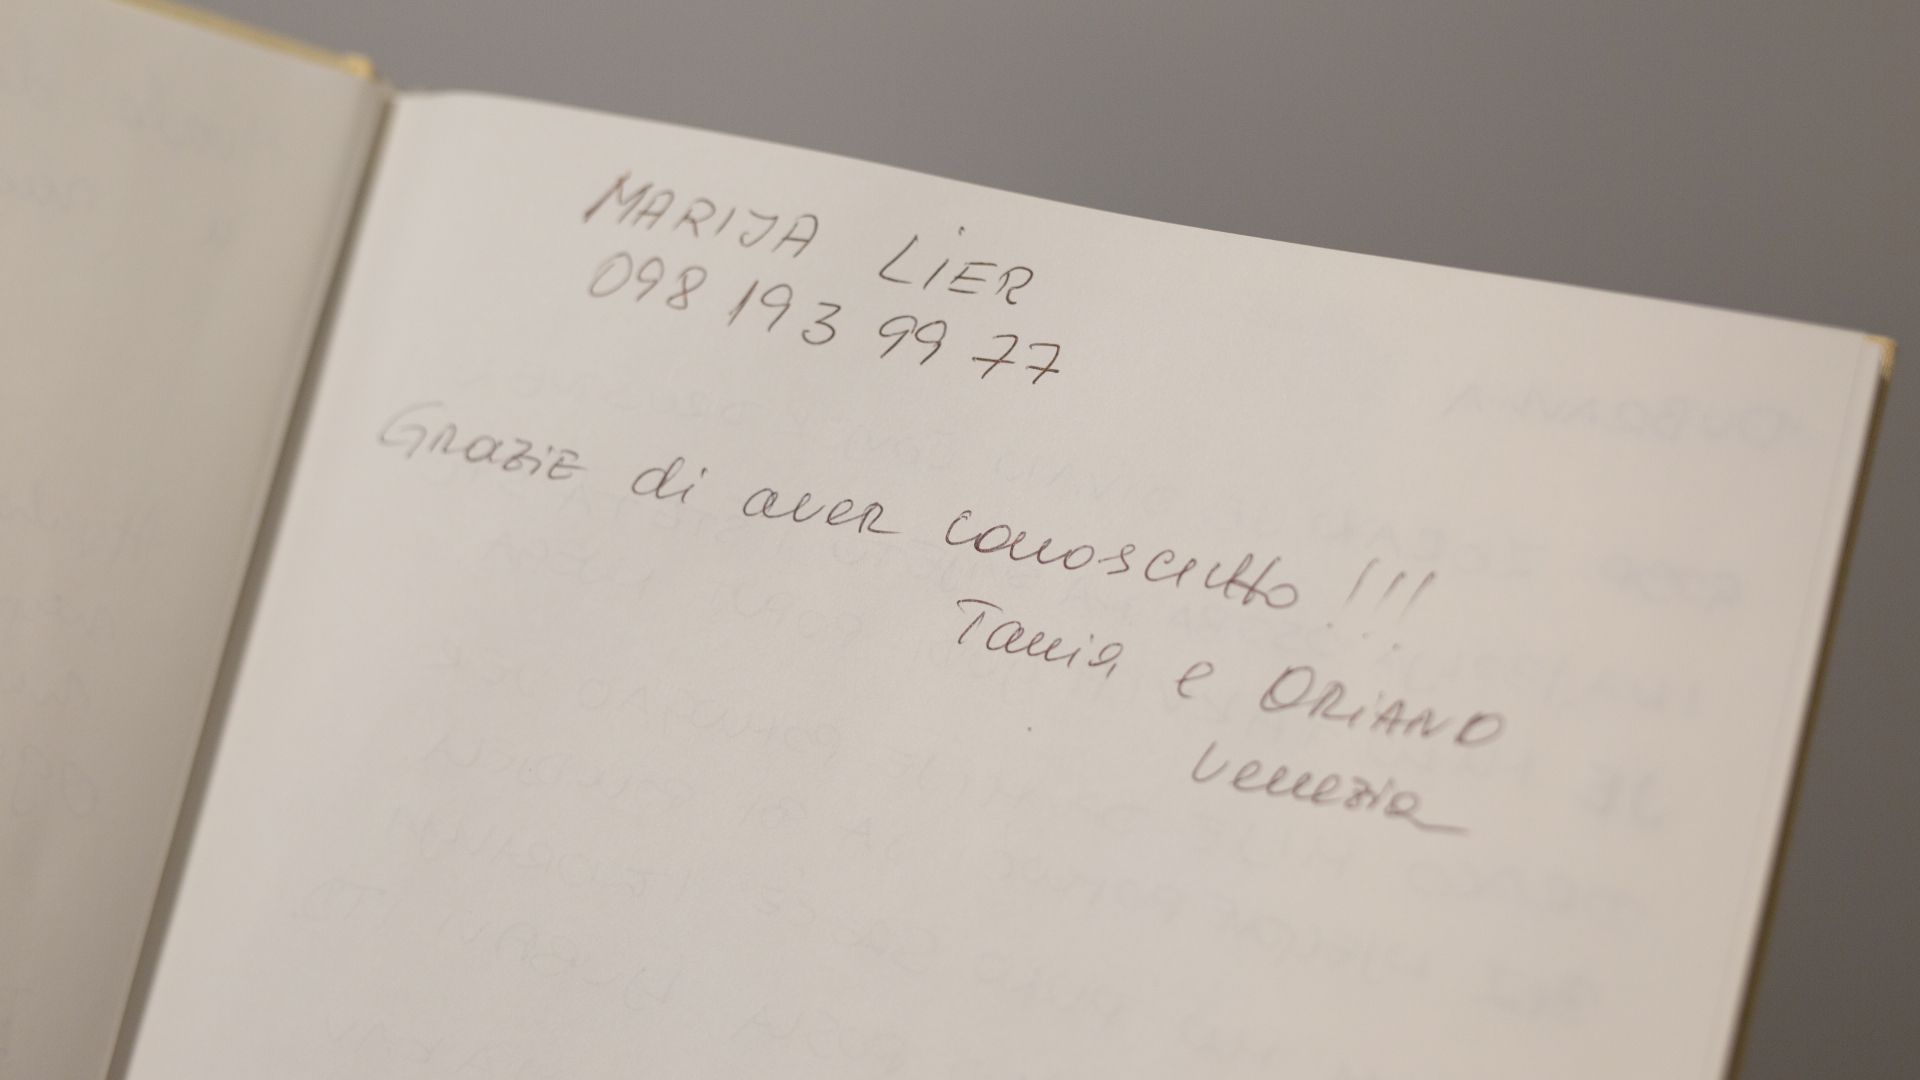 MARIJA LiER
098 193 99 77
Grazie di aver conosciutto !!!
Tania e ORiANO
Venezia